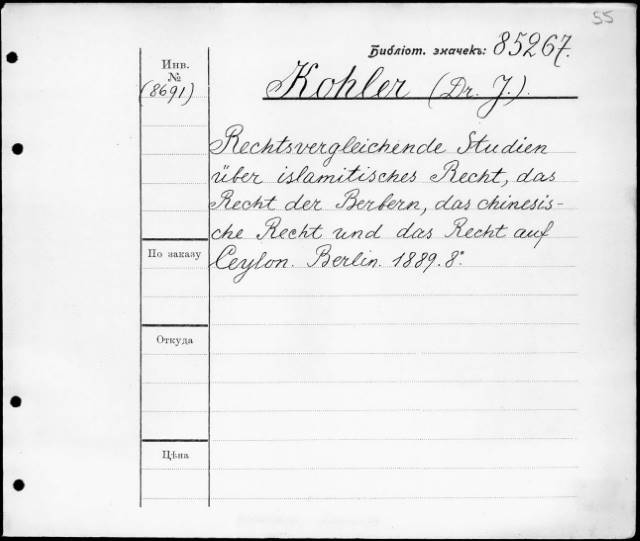 55
Библіот. значекъ: 85267.
Инв.
№
(8691)
Kohler (Dr. J.).
Rechtsvergleichende Studien
über islamitisches Recht, das
Recht der Berbern, das chinesis-
che Recht und das Recht auf
Ceylon. Berlin. 1889. 8°.
По заказу
Откуда
Цѣна